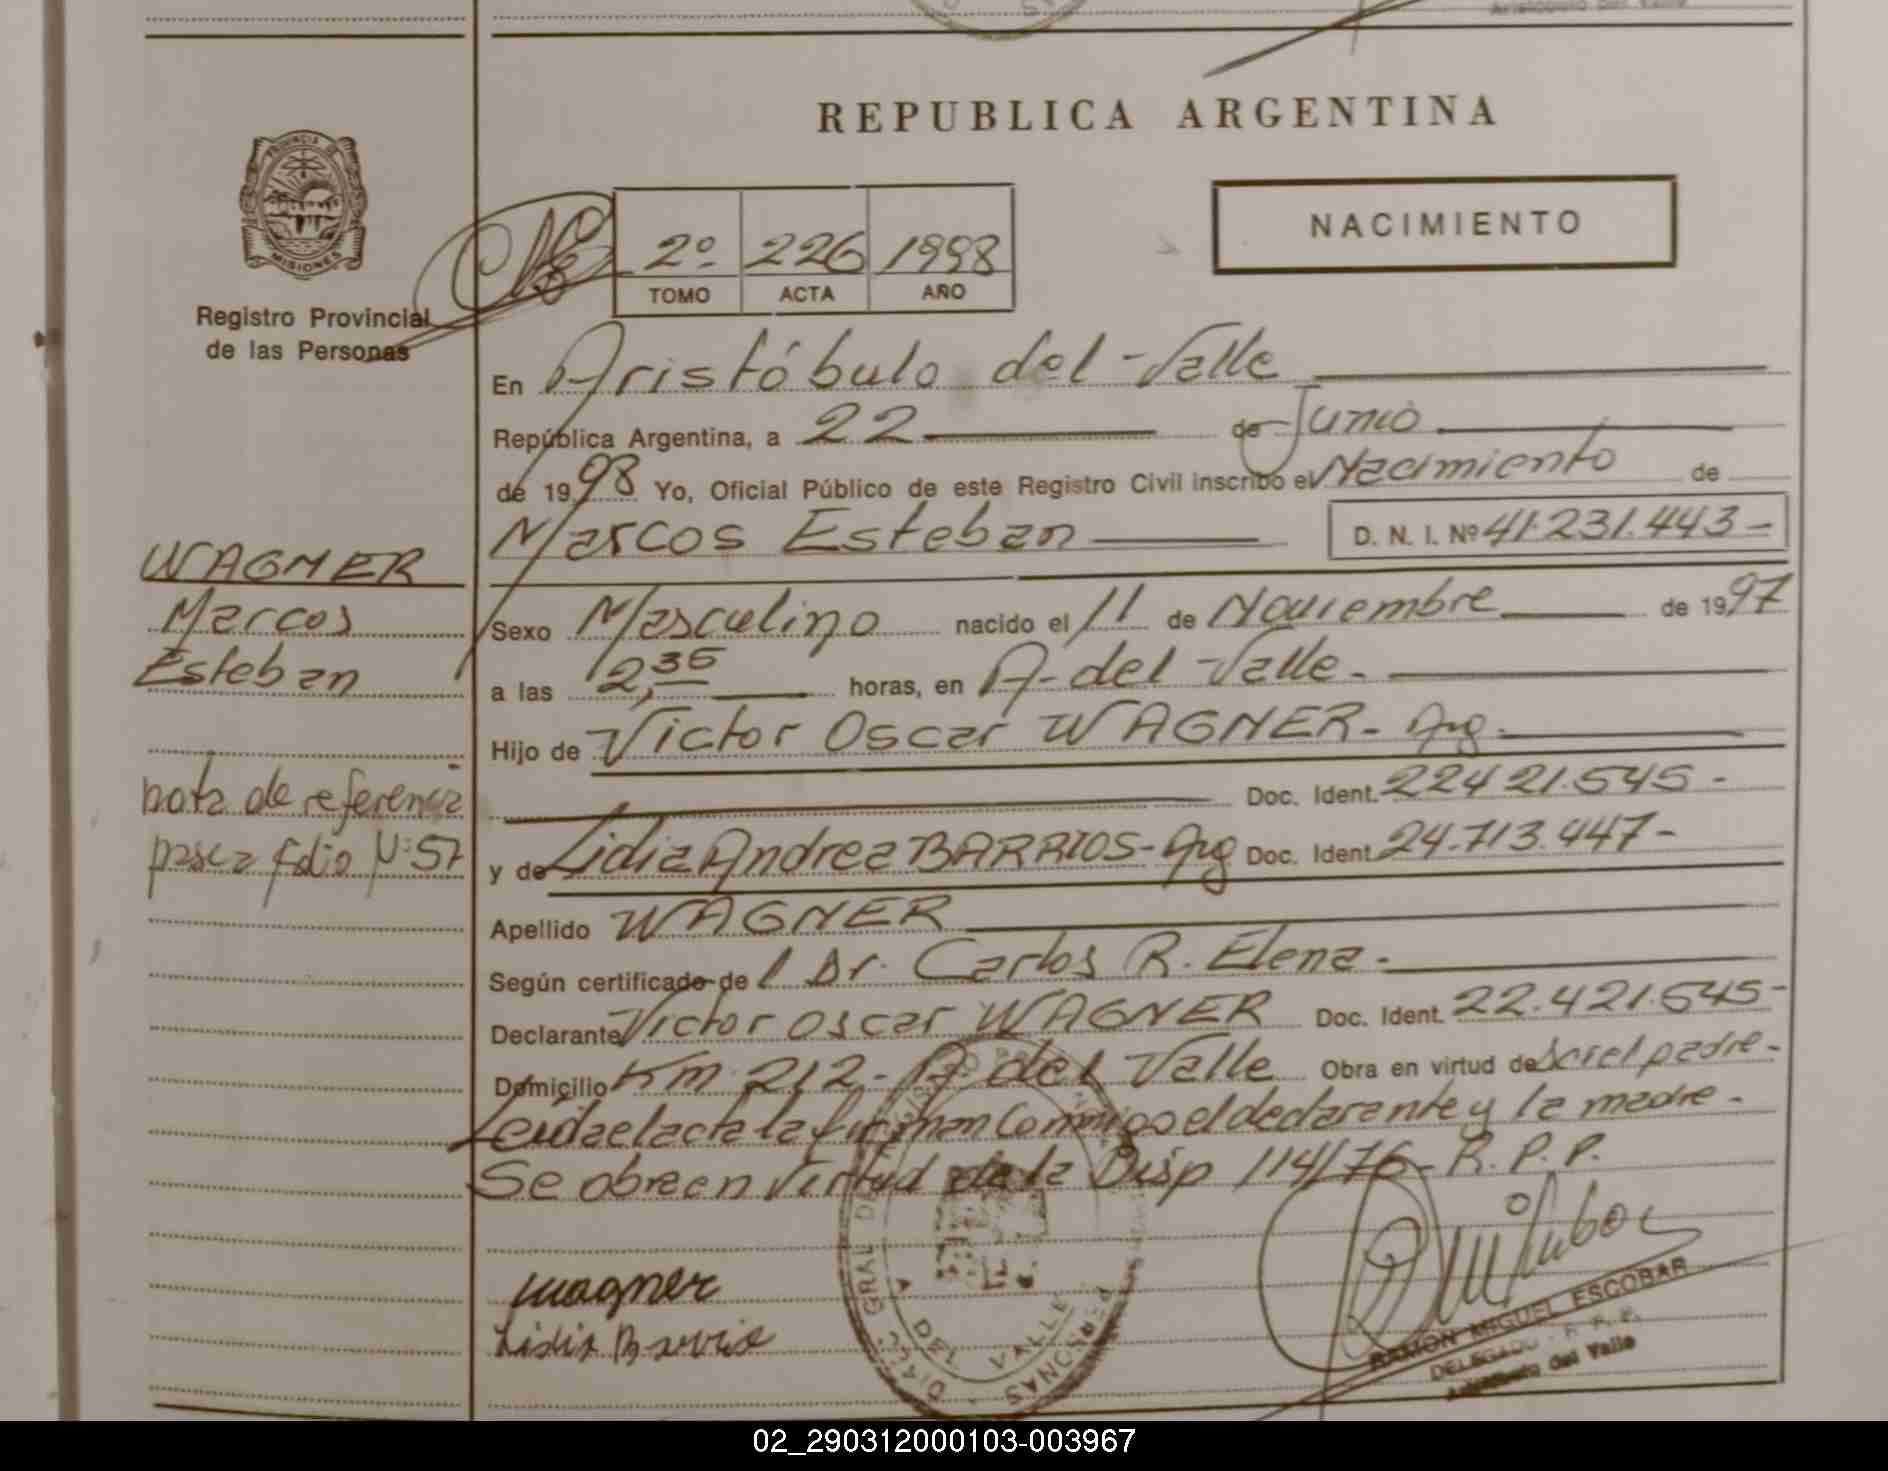 REPUBLICA ARGENTINA
PROVINCIA DE
MISIONES
Registro Provincial
de las Personas
2º 226 1998
TOMO ACTA AÑO
NACIMIENTO
En Aristóbulo del Valle
República Argentina, a 22 de Junio
de 1998 Yo, Oficial Público de este Registro Civil inscribo el Nacimiento de
Marcos Esteban D. N. I. Nº 41.231.443-
WAGNER
Marcos
Esteban
nota de referencia
pasa a folio Nº 57
Sexo Masculino nacido el 11 de Noviembre de 1997
a las 2,35 horas, en A. del Valle-
Hijo de Victor Oscar WAGNER- Arg-
Doc. Ident. 22421.545-
y de Lidia Andrea BARRIOS- Arg Doc. Ident. 24.713.447-
Apellido WAGNER
Según certificado de l Dr. Carlos R. Elena-
Declarante Victor Oscar WAGNER Doc. Ident. 22.421.545-
Domicilio Km 212- A. del Valle Obra en virtud de Ser el padre-
Leida el acta la firman Conmigo el declarante y la madre-
Se obra en virtud de la Disp 114/76- R.P.P.
Wagner
Lidia Barrio
DIREC. GRAL DEL PERSONAS
A DEL VALLE
RAMON MIGUEL ESCOBAR
DELEGADO R. P. P.
Aristobulo del Valle
02_290312000103-003967